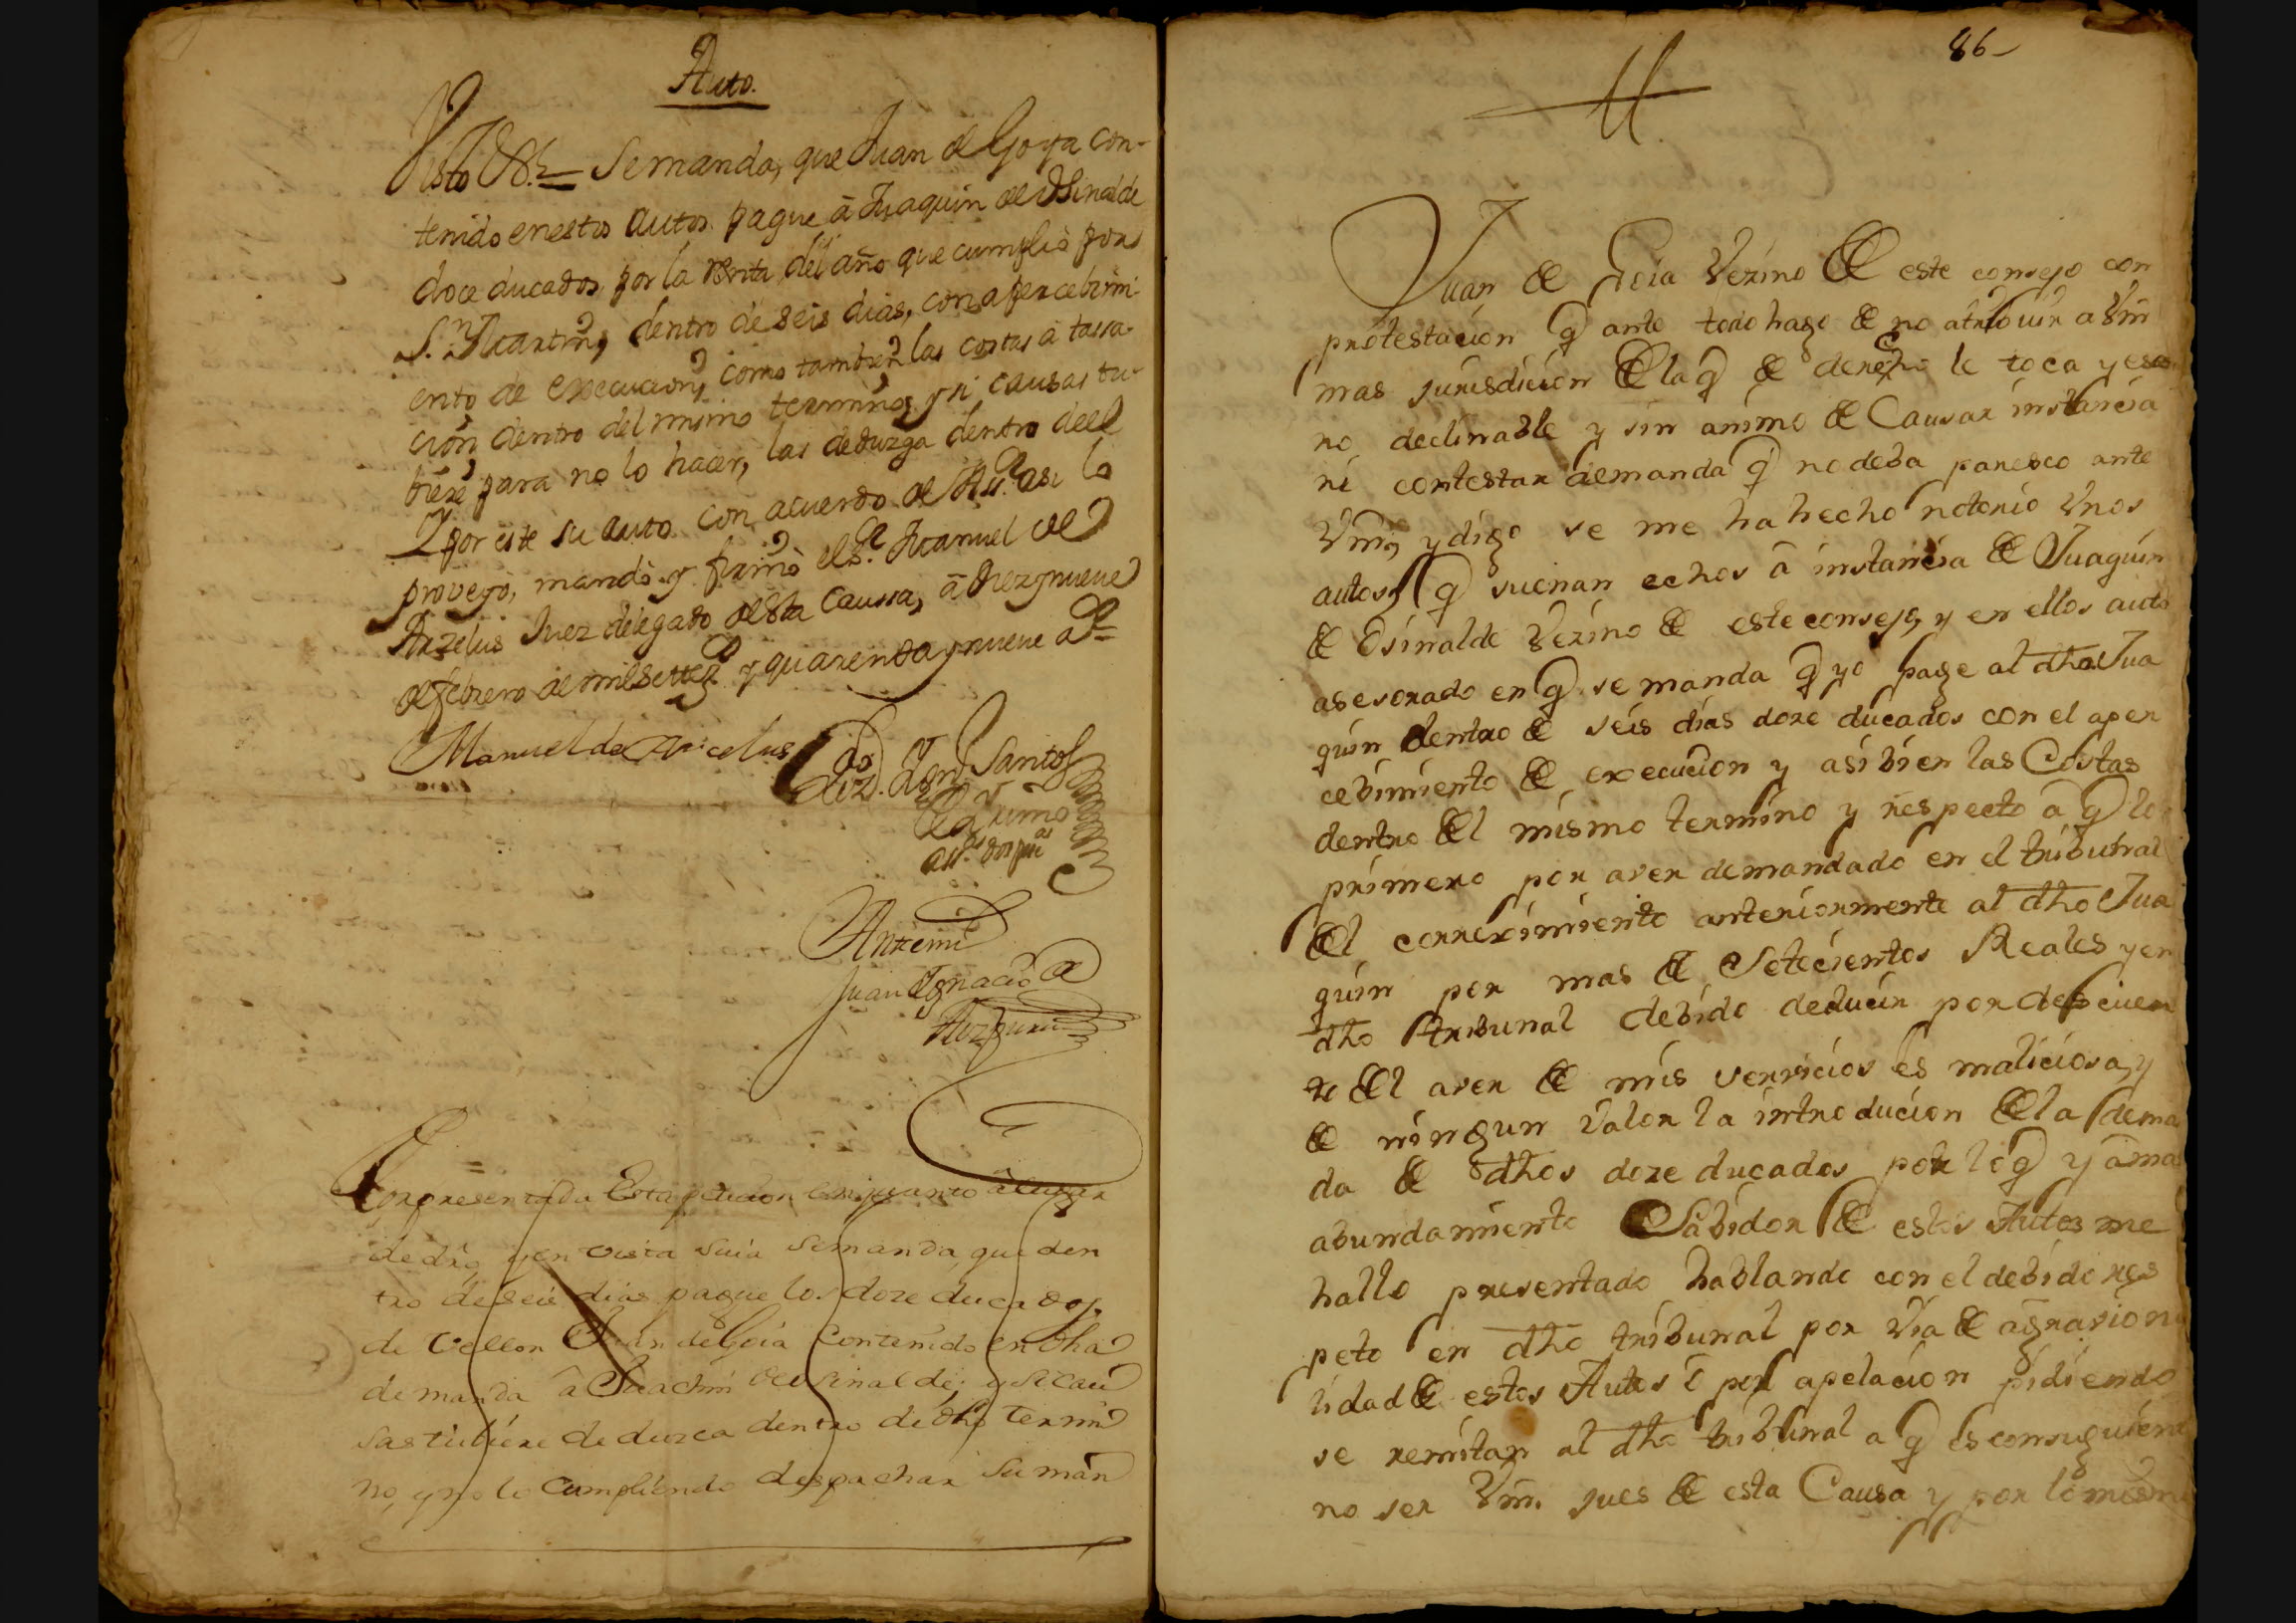 Auto.
Visto &.ª Se manda, que Juan de Goya con-
tenido en estos autos pague â Juaquin de Osinalde
doce ducados por la renta del año que cumplió por
S.n Martin, dentro de seis dias, con apercebimi-
ento de execucion, como tambien las costas â tassa-
cion dentro del mismo termino, y si causas tu-
biere para no lo hacer, las deduzga dentro deel
Y por este su auto con acuerdo de Ass.r asi lo
proveyò, mandò y firmò el s.r Manuel de
Arzelus Juez delegado desta Caussa, â diez y nueve
de febrero de mil settez.s y quarenta y nueve a.s=
Manuel de Arcelus
Liz.do Dn Santos

Antemi
Juan Ignacio de

Por presentada Esta peticion en quanto â lugar
de dro, y en vista suia se manda, que den
tro de seis dias pague los doze ducados
de vellon Juan de Goia Contenido en dha
demanda â Juachin de Osinalde; y si cau
sas tubiere deduzca dentro de dho termi
no, y no lo Cumpliendo despachar su man
86
Juan de Goia Vezino de este consejo con
protestacion q ante todo hago de no atribuir a Vm
mas jurisdicion de la q de derecho le toca y esa
no declinable y sin animo de Causar instancia
ni contestar demanda q no deba paresco ante
Vm, y digo se me ha hecho notorio Vnos
autos q suenan echos â instancia de Juaquin
de Osinalde Vezino de este consejo, y en ellos auto
asesorado en q se manda q yo page al dho Jua
quin dentro de seis dias doze ducados con el aper
cebimiento de execucion y asi bien las Costas
dentro del mismo termino y respecto â q lo
primero por aver demandado en el tribunal
del correximiento anteriormente al dho Jua
quin por mas de Setecientos Reales y en
dho tribunal debido deducir por descuen
to del aver de mis servicios es maliciosa, y
de ningun Valor la introducion de la dema
da de dhos doze ducados por lo q y âma
abundamiento Sabidor de estos Autos me
hallo presentado hablando con el debido res
peto en dho tribunal por Via de agravio nu
lidad de estos Autos ô por apelacion pidiendo
se remitan al dho tribunal a q es consiguiente
no ser Vm. jues de esta Causa y por lo mismo